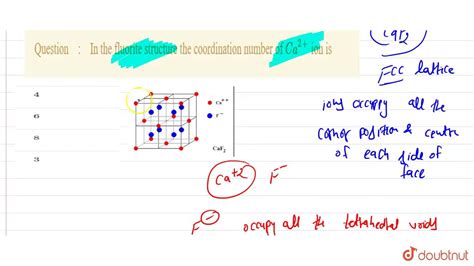 Question : In the fluorite structure the coordination number of Ca²⁺ ion is
4
6
8
3
Ca⁺⁺
F⁻
CaF₂
CaF₂
FCC lattice
ions occupy all the
corner position & centre
of each side of
face
Ca⁺² F⁻
F⁻ occupy all the tetrahedral voids
doubtnut